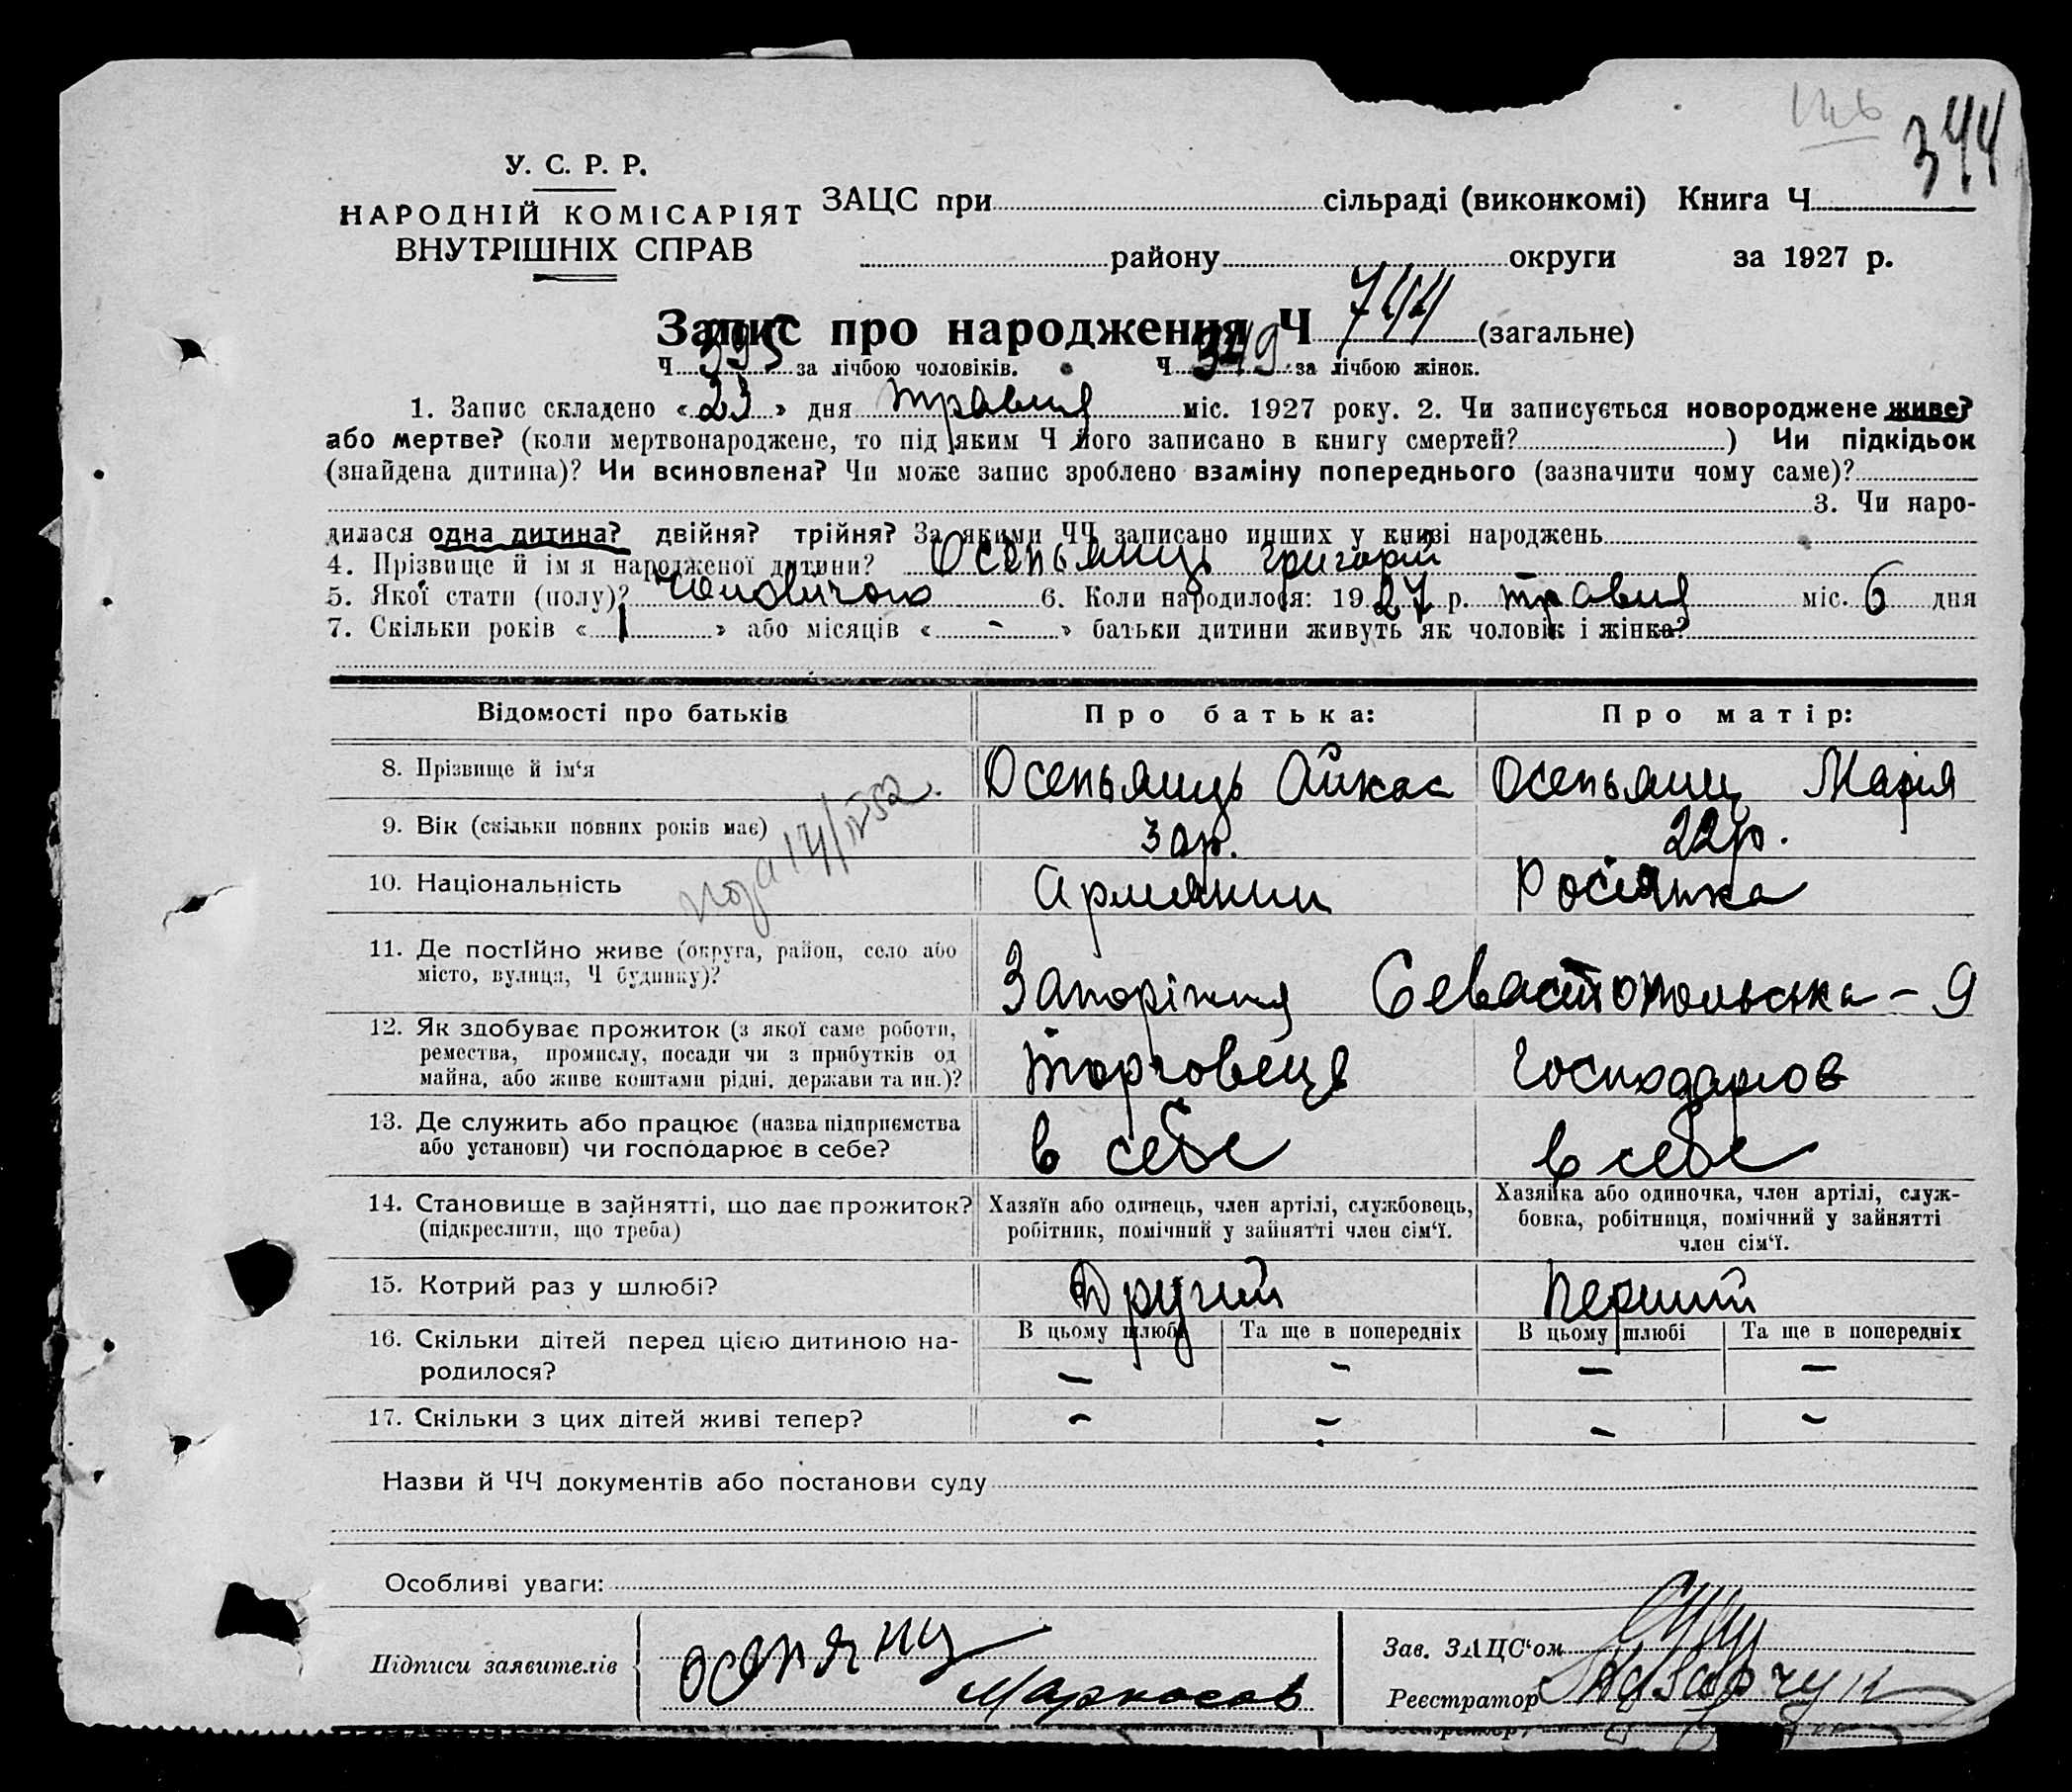 344
У. С. Р. Р.
НАРОДНІЙ КОМІСАРІЯТ
ВНУТРІШНІХ СПРАВ
ЗАЦС при сільраді (виконкомі) Книга Ч
району округи за 1927 р.
Запис про народження Ч 744 (загальне)
Ч 395 за лічбою чоловіків. Ч 349 за лічбою жінок.
1. Запис складено «23» дня травня міс. 1927 року. 2. Чи записується новороджене живе?
або мертве? (коли мертвонароджене, то під яким Ч його записано в книгу смертей? ) Чи підкідьок
(знайдена дитина)? Чи всиновлена? Чи може запис зроблено взаміну попереднього (зазначити чому саме)?
3. Чи наро-
дилася одна дитина? двійня? трійня? За якими ЧЧ записано инших у книзі народжень
4. Прізвище й ім я народженої дитини? Осепьянць Григорій
5. Якої стати (полу)? чоловічого 6. Коли народилося: 1927 р. травня міс. 6 дня
7. Скільки років «1» або місяців «-» батьки дитини живуть як чоловік і жінка?
Відомості про батьків Про батька: Про матір:
8. Прізвище й ім‘я Осепьянць Айкас Осепьянц Марія
9. Вік (скільки повних років має) 30р. 22р.
10. Національність Армянин Росіянка
11. Де постійно живе (округа, район, село або
місто, вулиця, Ч будинку)? Запоріжжя Севастопольська - 9
12. Як здобуває прожиток (з якої саме роботи,
ремества, промислу, посади чи з прибутків од
майна, або живе коштами рідні, держави та ин.)? Торговець Господарює
13. Де служить або працює (назва підприємства
або установи) чи господарює в себе? в себе в себе
14. Становище в зайнятті, що дає прожиток?
(підкреслити, що треба)
Хазяїн або одинець, член артілі, службовець,
робітник, помічний у зайнятті член сім‘ї.
Хазяйка або одиночка, член артілі, служ-
бовка, робітниця, помічний у зайнятті
член сім‘ї.
15. Котрий раз у шлюбі? Другий Перший
16. Скільки дітей перед цією дитиною на-
родилося?
В цьому шлюбі Та ще в попередніх В цьому шлюбі Та ще в попередніх
- - - -
17. Скільки з цих дітей живі тепер? - - - -
Назви й ЧЧ документів або постанови суду
Особливі уваги:
Підписи заявителів Осепянц
Маркосов
Зав. ЗАЦС‘ом
Реєстратор